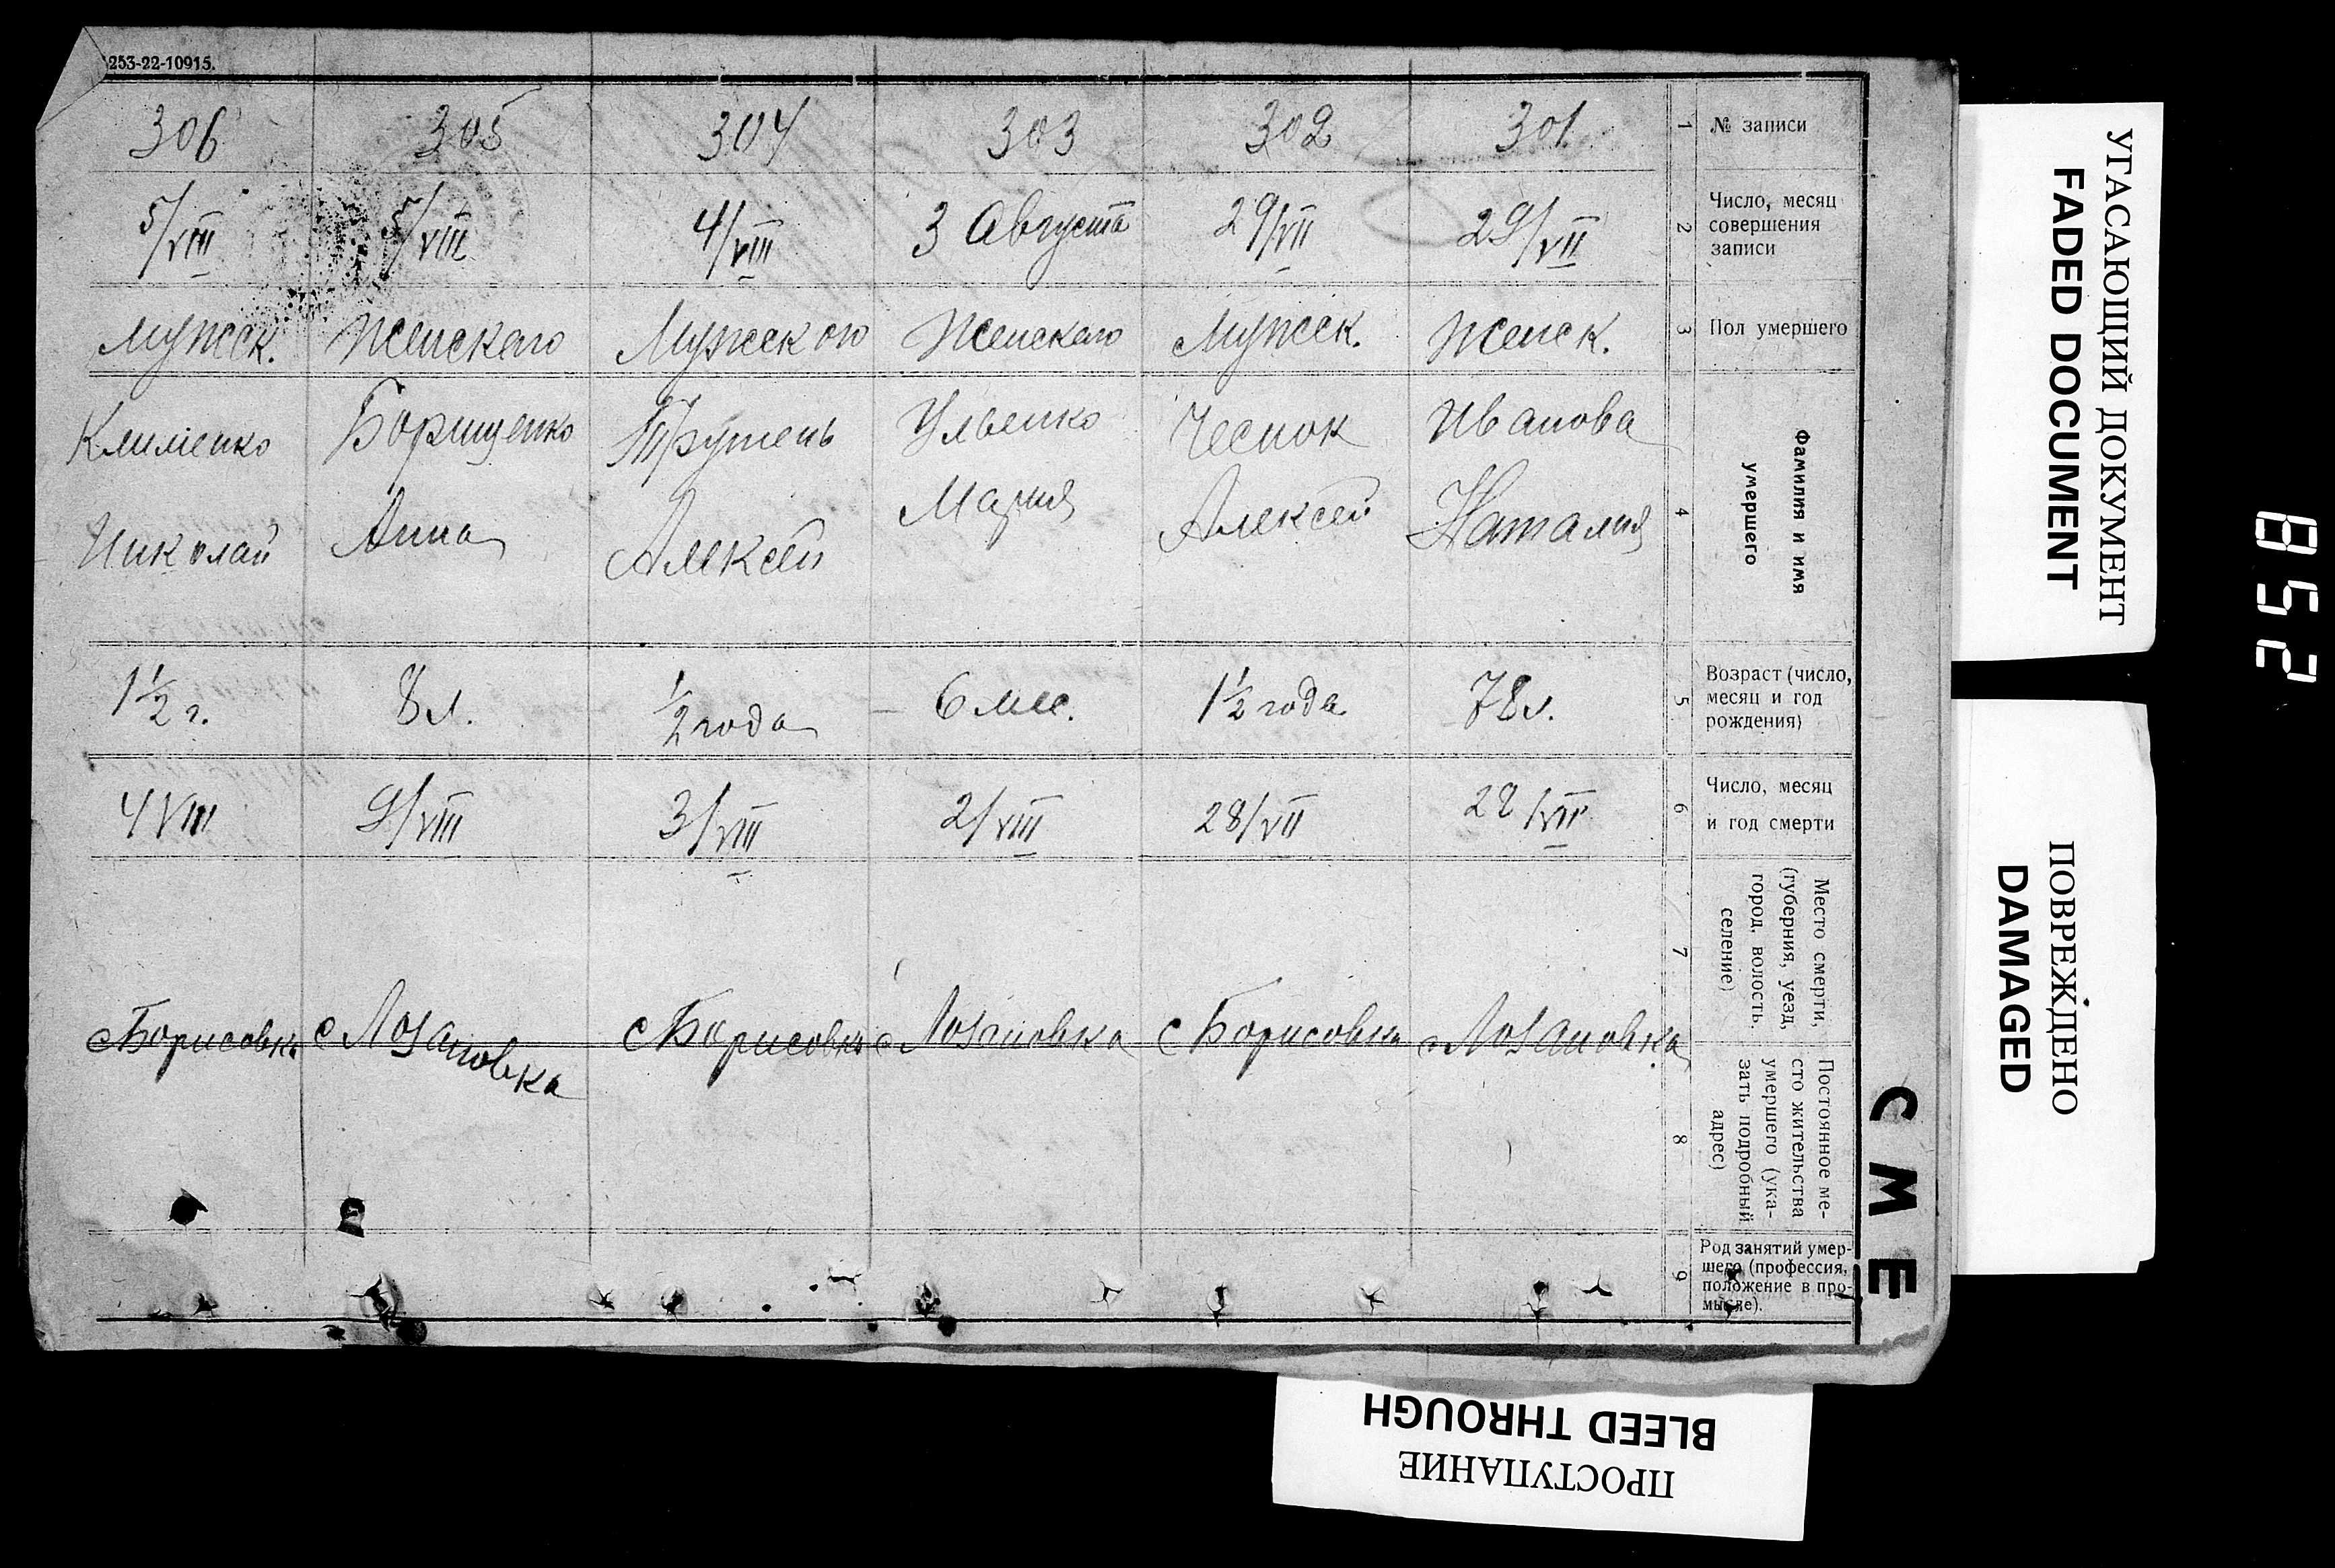 253-22-10915.
306 305 304 303 302 301 1 № записи
5/VIII 5/VIII 4/VIII 3 Августа 29/VII 29/VII 2 Число, месяц
совершения
записи
Мужск. Женского Мужского Женского Мужск. Женск. 3 Пол умершего
Клименко Борищенко Ульенко Чеснок Иванова 4 Фамилия и имя
умершего
Николай Анна Алексей Мария Алексей Наталия
1 1/2 г. 8 л. 1/2 года 6 мес. 1 1/2 года 78 л. 5 Возраст (число,
месяц и год
рождения)
4 VIII 3/VIII 2/VIII 28/VII 28/VII 6 Число, месяц
и год смерти
7 Место смерти,
(губерния, уезд,
город, волость,
селение)
с Борисовка с Лозановка с Борисовка с Лозановка с Борисовка с Лозановка
8 Постоянное ме-
сто жительства
умершего (ука-
зать подробный
адрес)
9 Род занятий умер-
шего (профессия,
положение в про-
мысле).
СМЕ
УГАСАЮЩИЙ ДОКУМЕНТ
FADED DOCUMENT
ПОВРЕЖДЕНО
DAMAGED
ПРОСТУПАНИЕ
BLEED THROUGH
852